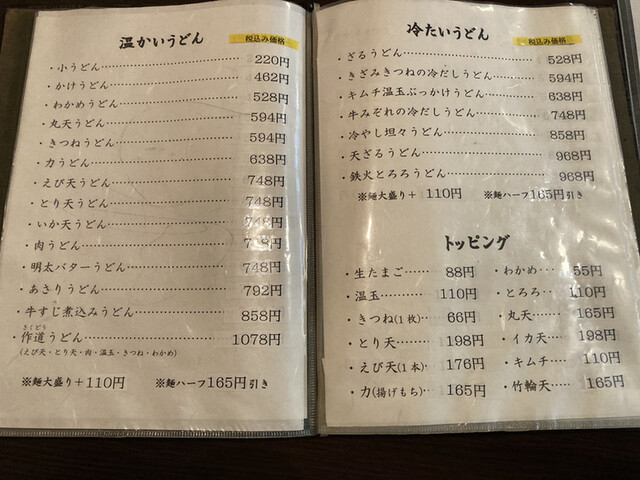 温かいうどん 税込み価格
・小うどん 220円
・かけうどん 462円
・わかめうどん 528円
・丸天うどん 594円
・きつねうどん 594円
・力うどん 638円
・えび天うどん 748円
・とり天うどん 748円
・いか天うどん 748円
・肉うどん 748円
・明太バターうどん 748円
・あさりうどん 792円
・牛すじ煮込みうどん 858円
さくどう
・作道うどん 1078円
(えび天・とり天・肉・温玉・きつね・わかめ)
※麺大盛り+110円 ※麺ハーフ165円引き
冷たいうどん 税込み価格
・ざるうどん 528円
・きざみきつねの冷だしうどん 594円
・キムチ温玉ぶっかけうどん 638円
・牛みぞれの冷だしうどん 748円
・冷やし坦々うどん 858円
・天ざるうどん 968円
・鉄火とろろうどん 968円
※麺大盛り+110円 ※麺ハーフ165円引き
トッピング
・生たまご 88円 ・わかめ 55円
・温玉 110円 ・とろろ 110円
・きつね(1枚) 66円 ・丸天 165円
・とり天 198円 ・イカ天 198円
・えび天(1本) 176円 ・キムチ 110円
・力(揚げもち) 165円 ・竹輪天 165円